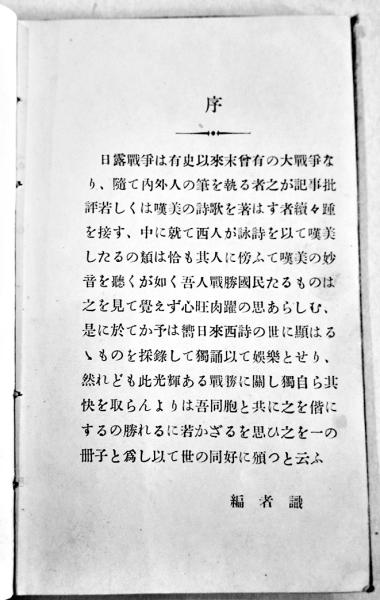 序
日露戰爭は有史以來末曾有の大戰爭な
り、隨て內外人の筆を執る者之が記事批
評若しくは嘆美の詩歌を著はす者續々踵
を接す、中に就て西人が詠詩を以て嘆美
したるの類は恰も其人に傍ふて嘆美の妙
音を聽くが如く吾人戰勝國民たるものは
之を見て覺えず心旺肉躍の思あらしむ、
是に於てか予は嚮日來西詩の世に顯はる
ゝものを採錄して獨誦以て娛樂とせり、
然れども此光輝ある戰勝に關し獨自ら其
快を取らんよりは吾同胞と共に之を偕に
するの勝れるに若かざるを思ひ之を一の
冊子と爲し以て世の同好に頒つと云ふ
編者識